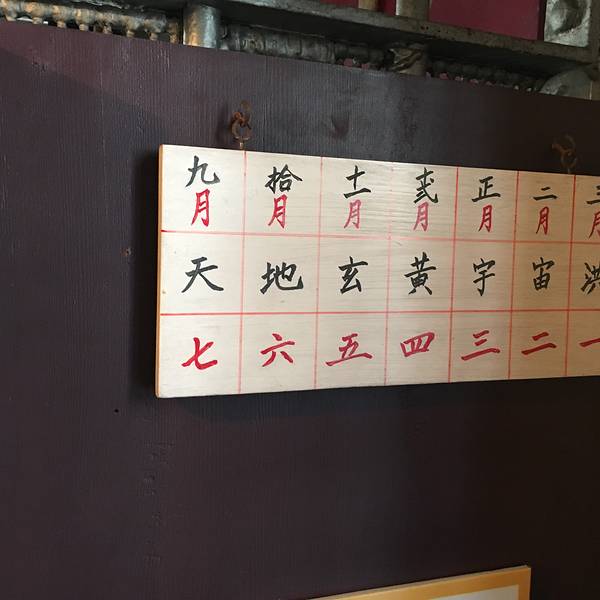 九月 拾月 十一月 十弍月 正月 二月 三月
天 地 玄 黃 宇 宙 洪
七 六 五 四 三 二 一